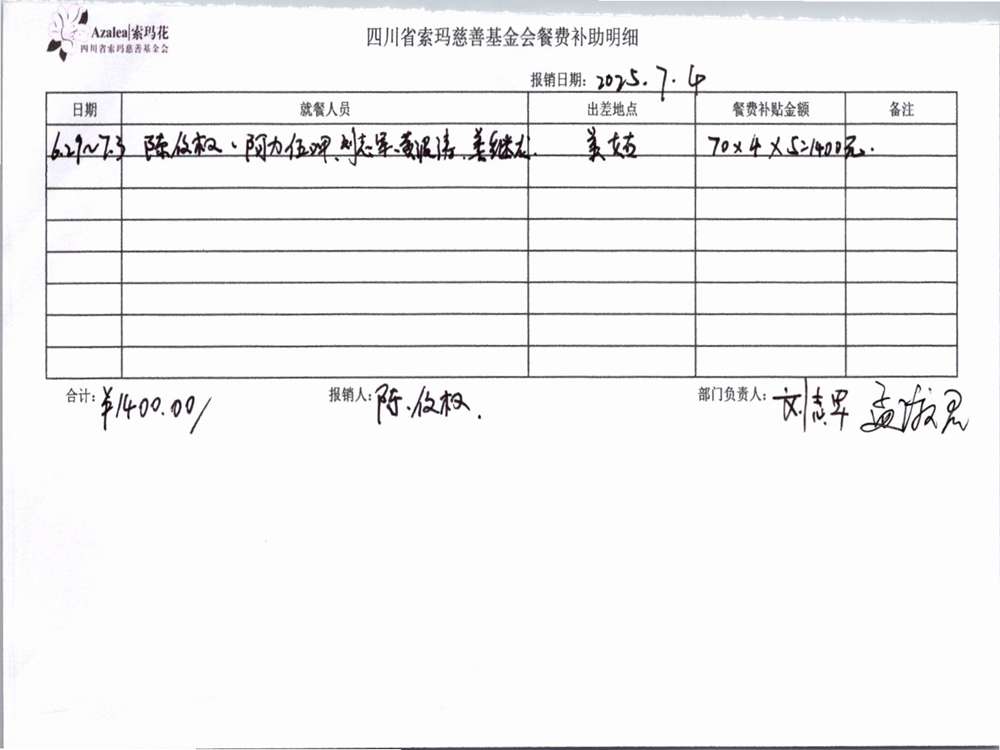 Azalea|索玛花
四川省索玛慈善基金会
四川省索玛慈善基金会餐费补助明细
报销日期: 2025.7.4
日期 就餐人员 出差地点 餐费补贴金额 备注
6.29~7.3 陈俊权、阿力伍呷、刘志军、黄波涛、姜继龙. 美姑 70×4×5=1400元.
合计: ¥1400.00/ 报销人: 陈俊权. 部门负责人: 刘志军